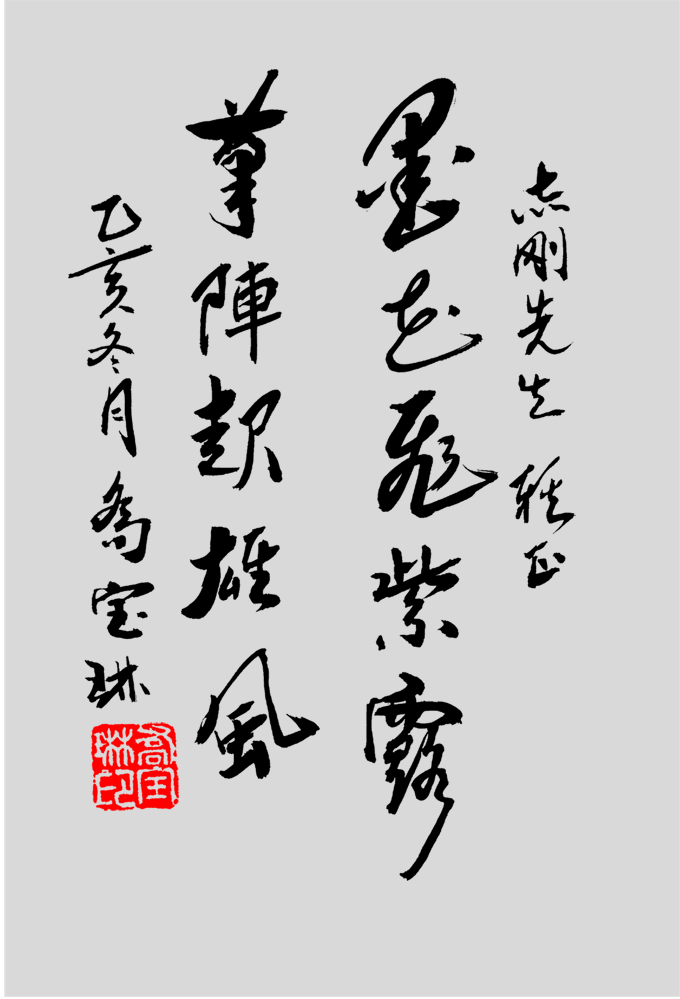 志刚先生 雅正
墨花飛紫露
筆陣起雄風
乙亥冬月 喬宝琳
喬宝琳印